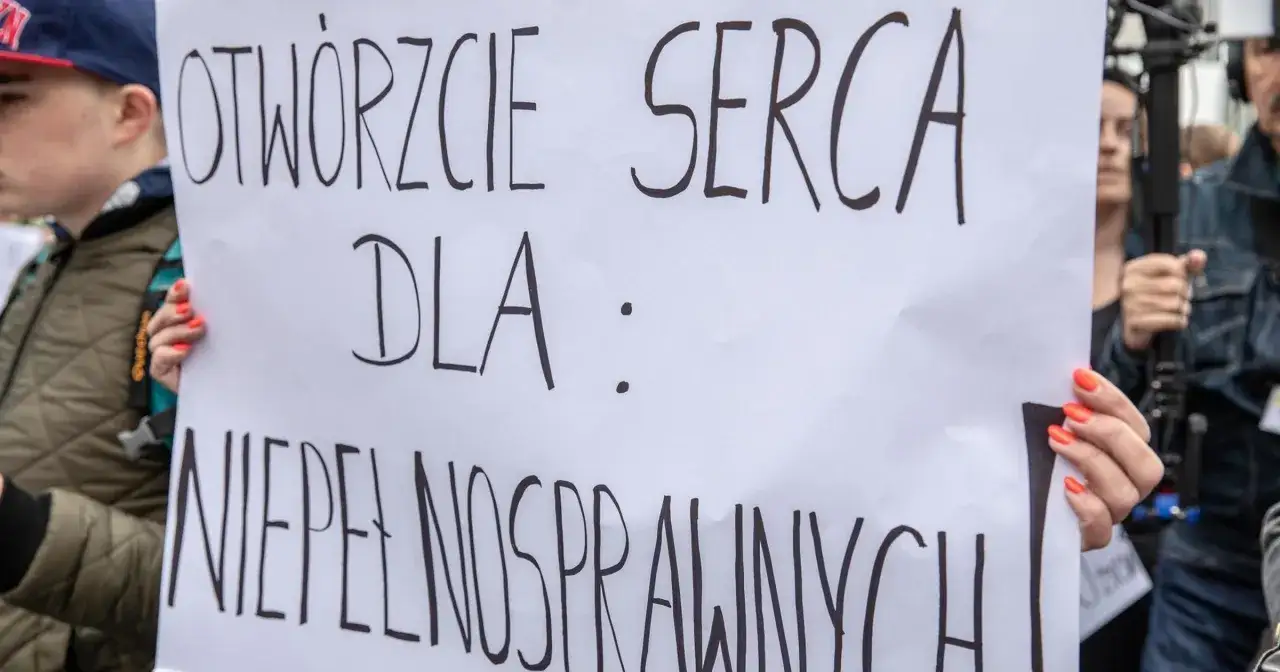 OTWÓRZCIE SERCA
DLA :
NIEPEŁNOSPRAWNYCH!